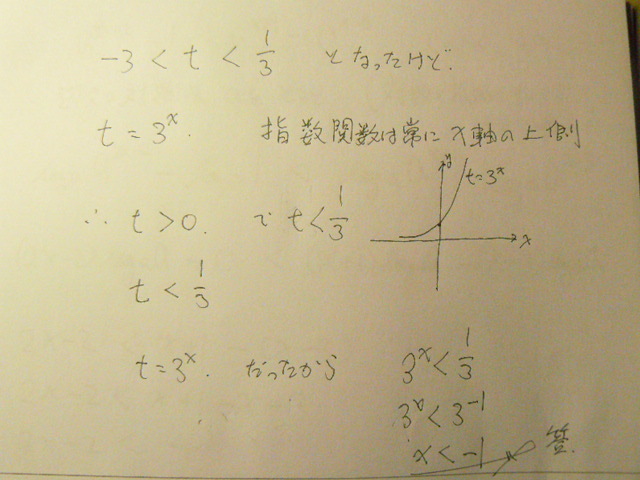 -3 < t < 1/3 となったけど.
t = 3^x. 指数関数は常に x軸の上側
y
t=3^x
x
∴ t > 0. で t < 1/3
t < 1/3
t = 3^x. だったから 3^x < 1/3
3^x < 3^-1
x < -1 答.